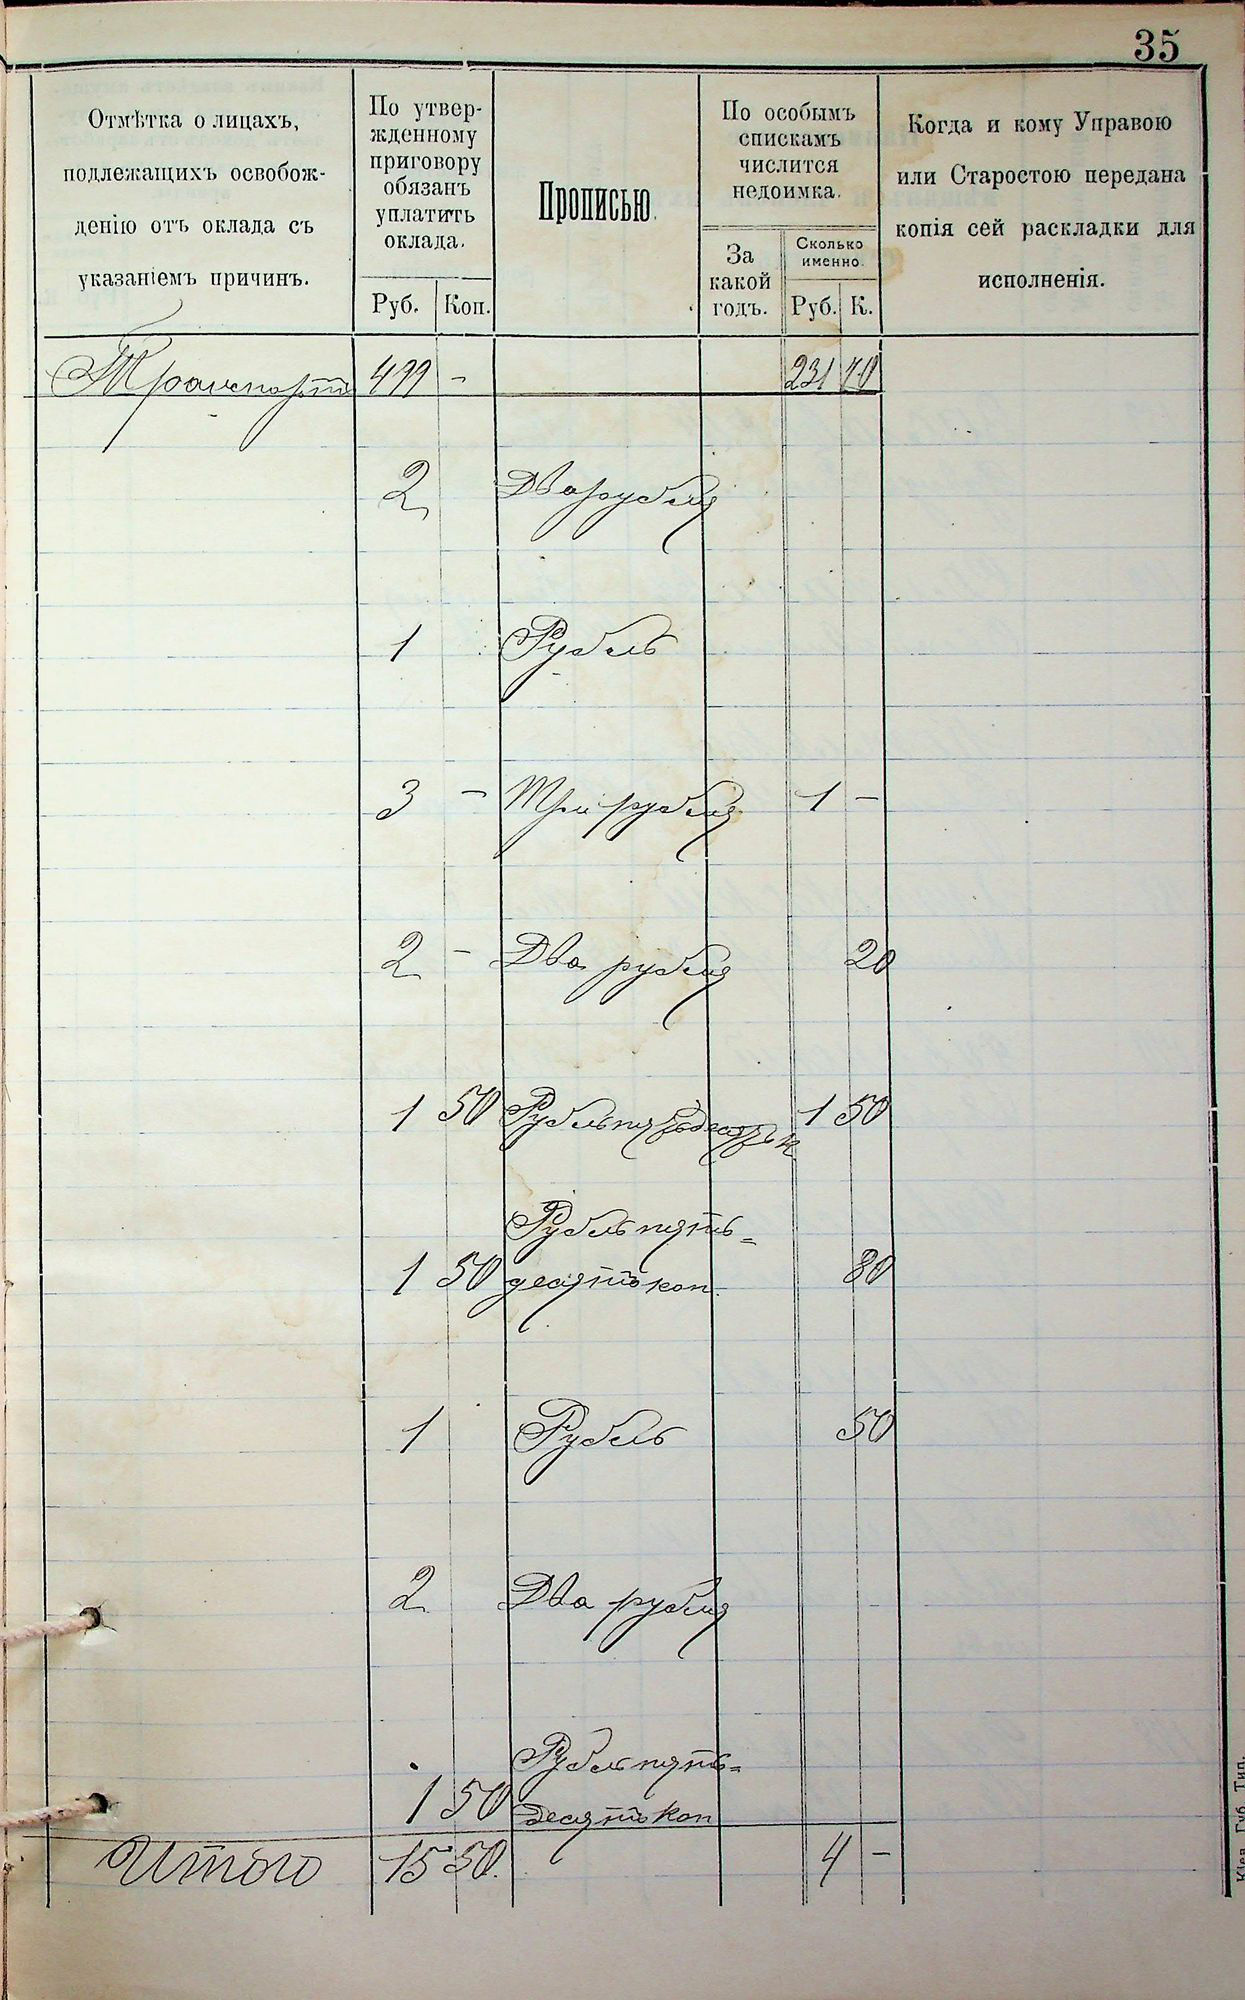 35
Отмѣтка о лицахъ,
подлежащихъ освобож-
денію отъ оклада съ
указаніемъ причинъ.
По утвер-
жденному
приговору
обязанъ
уплатить
оклада.
Руб. Коп.
Прописью.
По особымъ
спискамъ
числится
недоимка.
За
какой
годъ.
Сколько
именно.
Руб. К.
Когда и кому Управою
или Старостою передана
копія сей раскладки для
исполненія.
Транспортъ 499 - 231 70
2 Два рубля
1 Рубль
3 - Три рубля 1 -
2 - Два рубля 20
1 50 Рубль пятьдесятъ к 1 50
Рубль пять=
1 50 десятъ коп. 80
1 Рубль 50
2 Два рубля
Рубль пять=
1 50 десятъ коп
Итого 15 50. 4 -
Кіев. Губ. Тип.